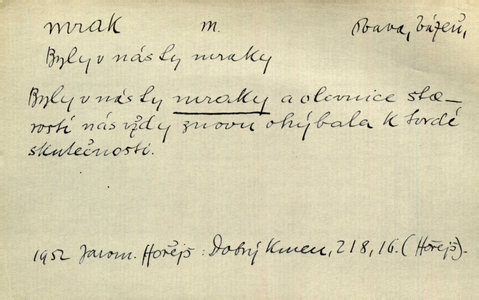 mrak m. Povaha, bázeň,
Byly v nás ty mraky
Byly v nás ty mraky a olovnice sta-
rostí nás vždy znovu ohýbala k tvrdé
skutečnosti.
1952 Jarom. Hořejš: Dobrý kmen, 218, 16. (Hořejš).